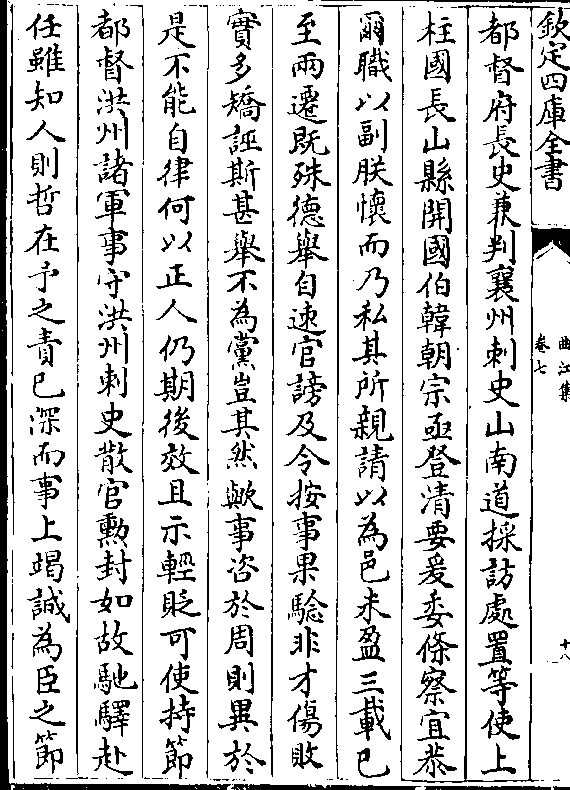 欽定四庫全書
曲江集
卷七
十八
都督府長史兼判襄州刺史山南道採訪處置等使上
柱國長山縣開國伯韓朝宗亟登清要爰委條察宜恭
爾職以副朕懷而乃私其所親請以為邑未盈三載已
至兩遷既殊德舉自速官謗及令按事果驗非才傷敗
實多矯誣斯甚舉不為黨豈其然歟事咨於周則異於
是不能自律何以正人仍期後效且示輕貶可使持節
都督洪州諸軍事守洪州刺史散官勲封如故馳驛赴
任雖知人則哲在予之責已深而事上竭誠為臣之節